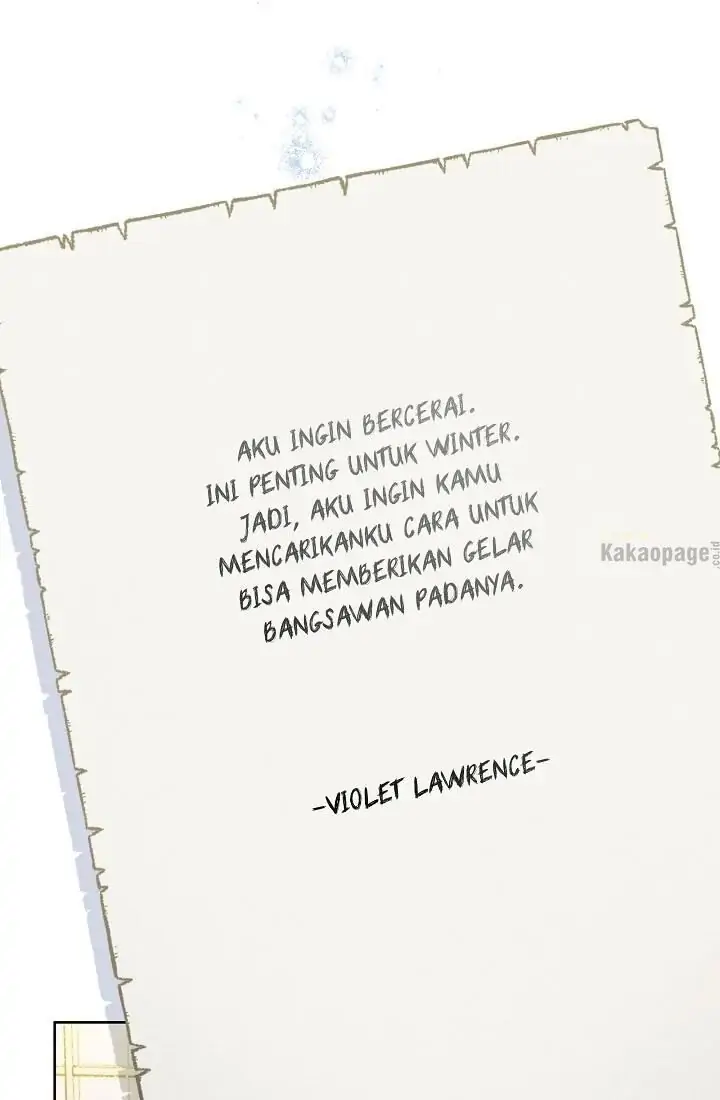 AKU INGIN BERCERAI.
INI PENTING UNTUK WINTER.
JADI, AKU INGIN KAMU
MENCARIKANKU CARA UNTUK
BISA MEMBERIKAN GELAR
BANGSAWAN PADANYA.
Kakaopage.co.id
-VIOLET LAWRENCE-